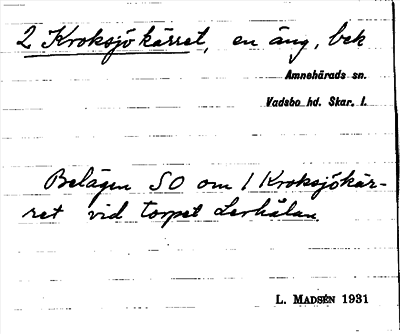 2 Kroksjökärret, en äng, bek
Amnehärads sn.
Vadsbo hd. Skar. l.
Belägen SO om 1 Kroksjökär-
ret vid torpet Lerhålan.
L. MADSÉN 1931